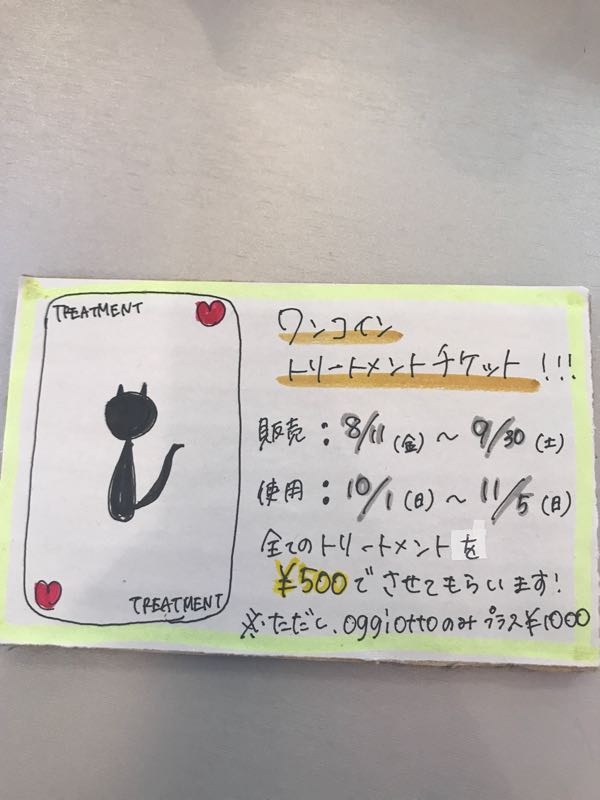 TREATMENT
ワンコイン
トリートメントチケット!!!
販売：8/11(金)～9/30(土)
使用：10/1(日)～11/5(日)
全てのトリートメントを
¥500でさせてもらいます!
TREATMENT
※ただし、oggiottoのみプラス¥1000